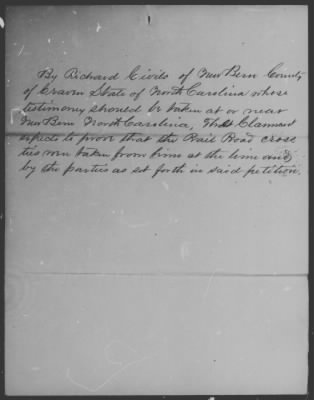 By Richard Civils of New Bern County
of Craven State of North Carolina whose
testimony should be taken at or near
New Bern North Carolina, That Claimant
expects to prove that the Rail Road cross
ties were taken from him at the time and
by the parties as set forth in said petition.